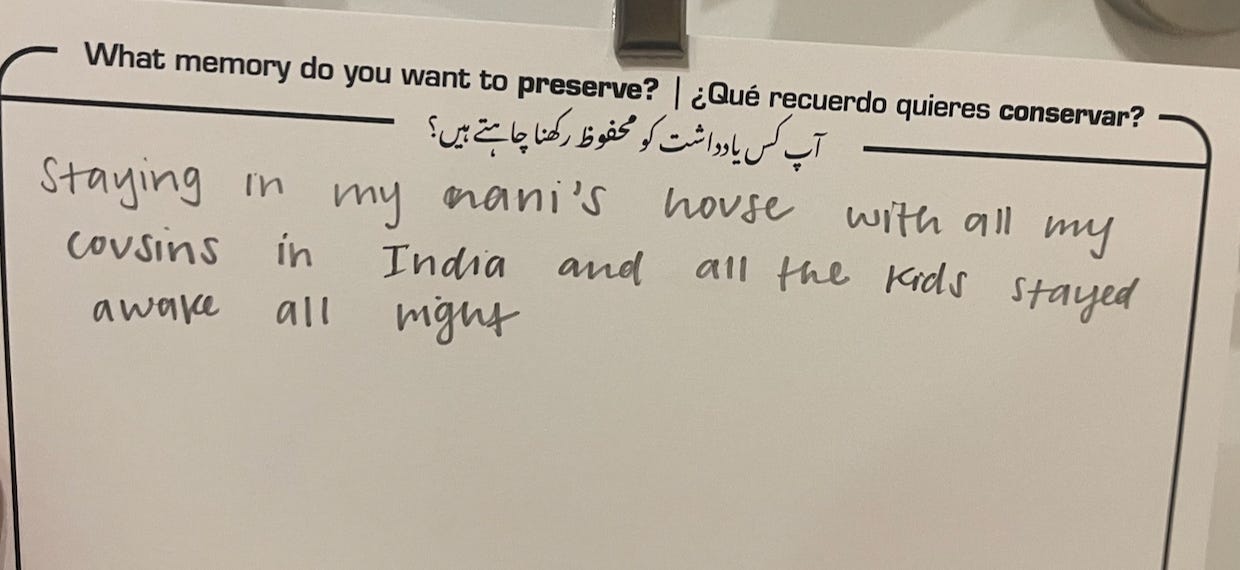 What memory do you want to preserve? | ¿Qué recuerdo quieres conservar?
آپ کس یادداشت کو محفوظ رکھنا چاہتے ہیں؟
Staying in my nani's house with all my
cousins in India and all the kids stayed
awake all night